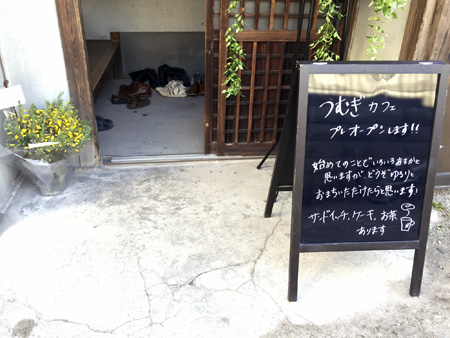 つむぎカフェ
プレオープンします!!
始めてのことでいろいろあるかと
思いますが、どうぞゆるりと
おまちいただけたらと思います♪
サンドイッチ、ケーキ、お茶
あります